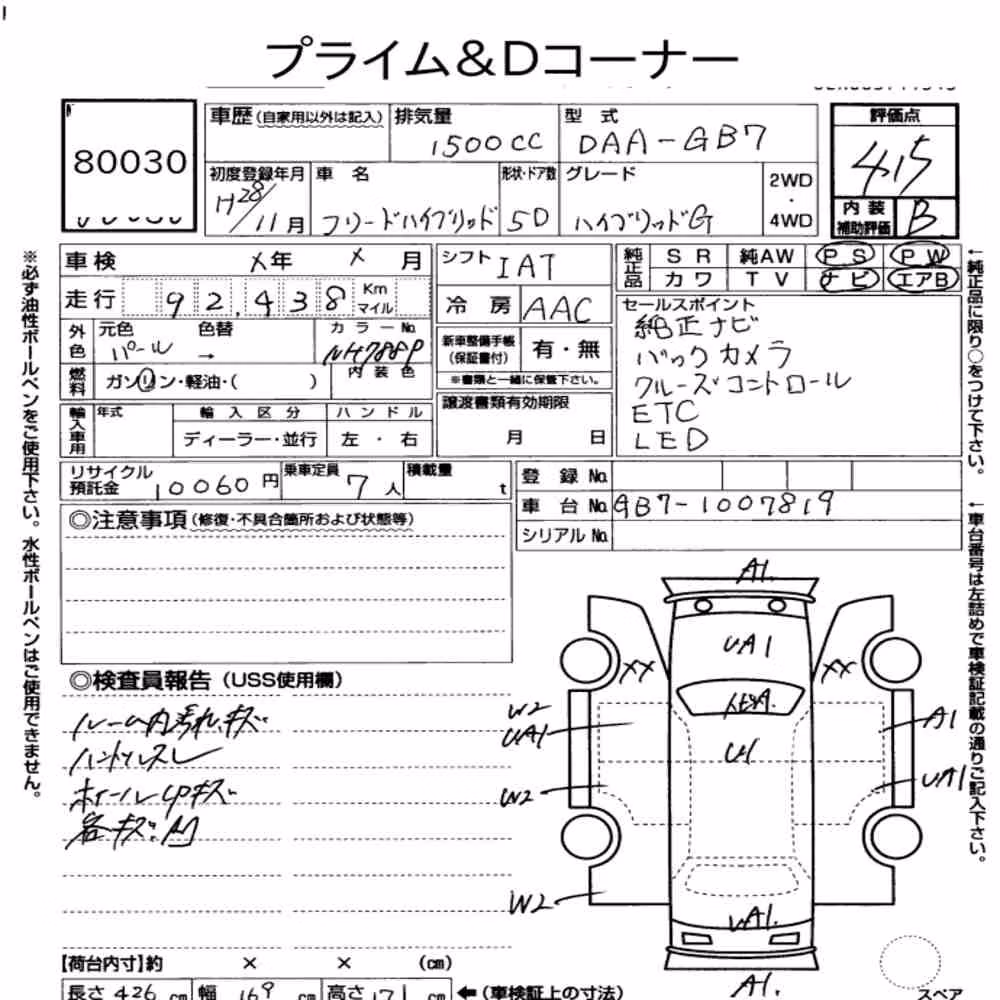 プライム&Dコーナー
80030
車歴(自家用以外は記入)
排気量
1500cc
型 式
DAA-GB7
評価点
4.5
内装
補助評価
B
初度登録年月
H28/11月
車 名
フリードハイブリッド
形状・ドア数
5D
グレード
ハイブリッドG
2WD
・
4WD
※必ず油性ボールペンをご使用下さい。水性ボールペンはご使用できません。
車検 ×年 × 月
走行 92,438 Km マイル
外色
元色 パール
色替 →
カラーNo. NH788P
内装色
燃料
ガソリン・軽油・( )
輸入車用
年式
輸入区分
ディーラー・並行
ハンドル
左・右
シフト IAT
冷 房 AAC
新車整備手帳
(保証書付)
有・無
※書類と一緒に保管下さい。
譲渡書類有効期限
月 日
純正品
SR 純AW PS PW
カワ TV ナビ エアB
セールスポイント
純正ナビ
バックカメラ
クルーズコントロール
ETC
LED
←純正品に限り○をつけて下さい。
リサイクル
預託金
10060円
乗車定員
7人
積載量
t
登 録 No.
車 台 No. GB7-1007819
シリアル No.
←車台番号は左詰めで車検証記載の通りご記入下さい。
◎注意事項(修復・不具合箇所および状態等)
◎検査員報告(USS使用欄)
ルーム内汚れ、キズ
ハンドルスレ
ホイールCPキズ
各キズ、凹
A1.
UA1
XX
XX
U1
W2
UA1
A1
UA1
W2
W2
UA1.
A1.
【荷台内寸】約 × × (cm)
長さ 426 cm 幅 169 cm 高さ 171 cm ←(車検証上の寸法)
スペア